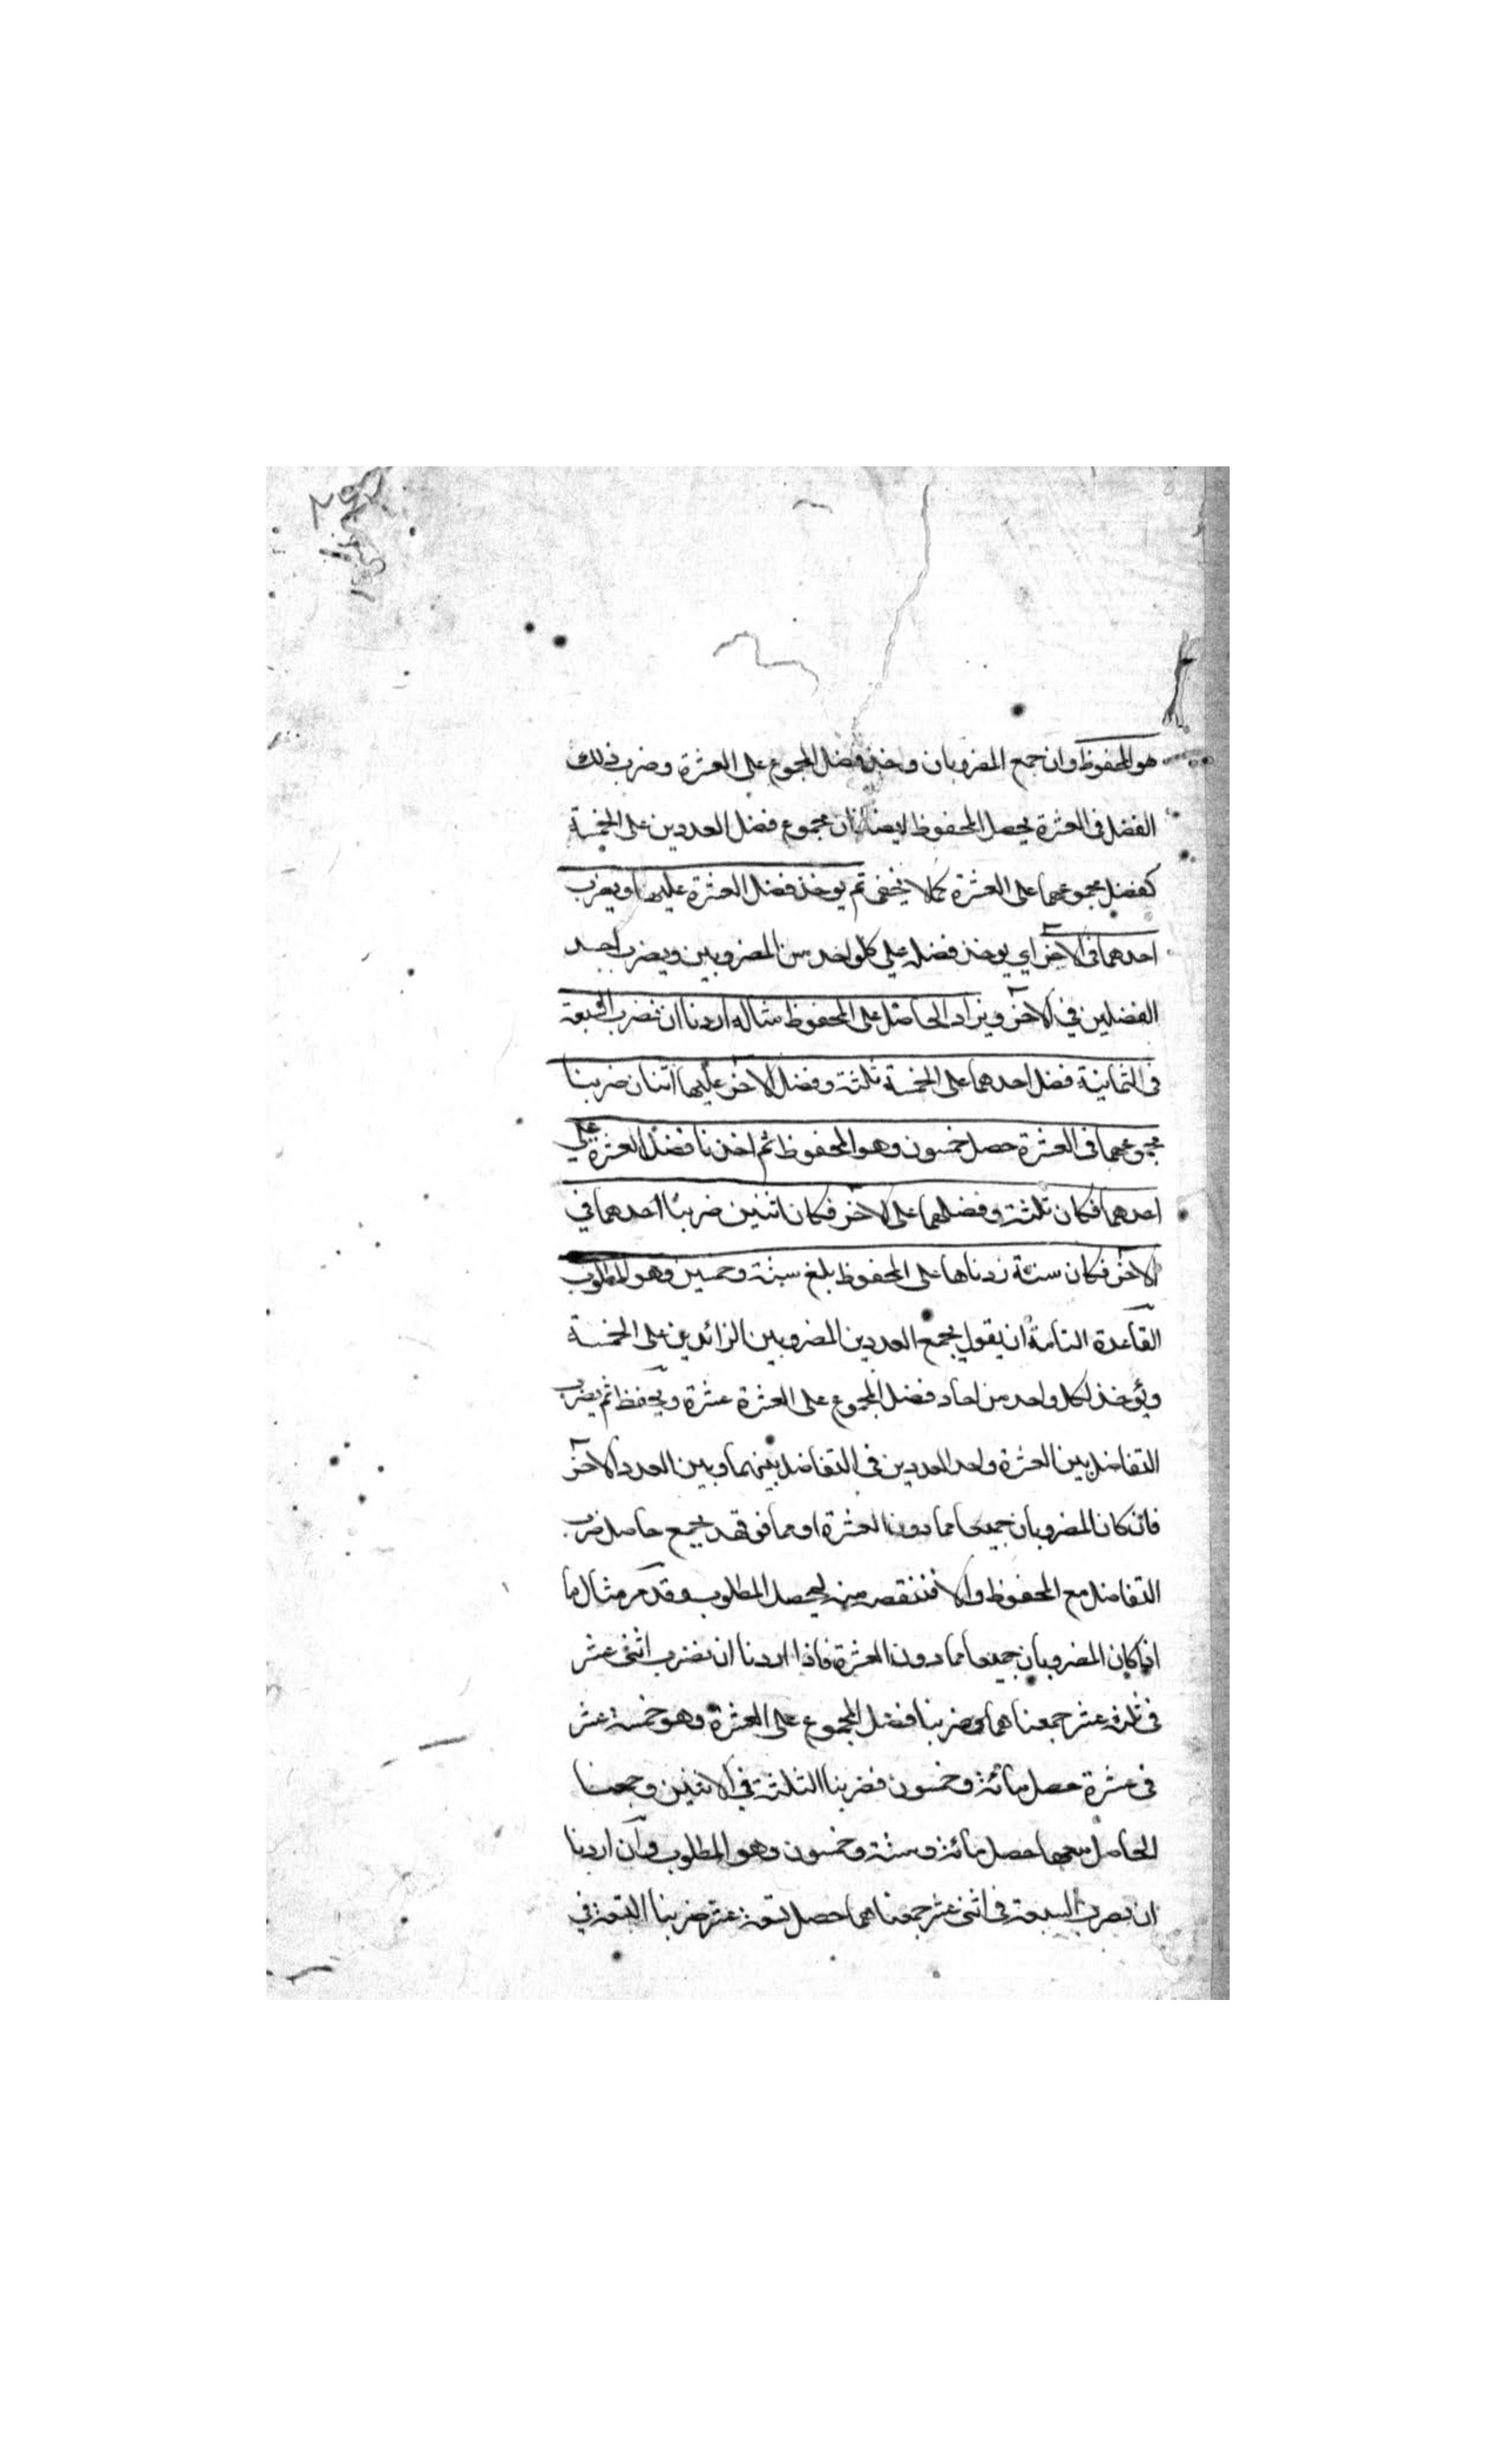 هو المحفوظ وان جمع المضروبان وخذ فضل المجموع على العشرة وضرب ذلك
الفضل فى العشرة يحصل المحفوظ ايضا فان مجموع فضل العددين على الخمسة
كفضل مجموعهما على العشرة كما لا يخفى ثم يوخذ فضل العشرة عليهما ويضرب
احدهما فى الآخر اي يوخذ فضله علي كل واحد من المضروبين ويضرب احد
الفضلين في الآخر ويزاد الحاصل على المحفوظ مثاله اردنا ان نضرب السبعة
فى الثمانية فضل احدهما على الخمسة ثلثة وفضل الآخر عليها اثنان ضربنا
مجموعهما فى العشرة حصل خمسون وهو المحفوظ ثم اخذنا فضل العشرة علي
احدهما فكان ثلثة وفضلها على الآخر فكان اثنين ضربنا احدهما في
الآخر فكان ستة زدناها على المحفوظ بلغ ستة وخمسين وهو المطلوب
القاعدة التامة ان يقول يجمع العددين المضروبين الزائدين على الخمسة
ويؤخذ لكل واحد من احاد فضل المجموع على العشرة عشرة ويحفظ ثم يضرب
التفاضل بين العشرة واحد العددين فى التفاضل بينهما وبين العدد الآخر
فان كان المضروبان جميعا مما دون العشرة او مما فوقه يجمع حاصل ضرب
التفاضل مع المحفوظ والا فننقص منه ليحصل المطلوب وقد مر مثال ما
اذا كان المضروبان جميعا مما دون العشرة فاذا اردنا ان نضرب اثنى عشر
فى ثلثة عشر جمعناهما وضربنا فضل المجموع على العشرة وهو خمسة عشر
فى عشرة حصل مائة وخمسون فضربنا الثلثة في الاثنين وجمعنا
الحاصل معها حصل مائة وستة وخمسون وهو المطلوب وان اردنا
ان نضرب السبعة فى اثنى عشر جمعناهما حصل تسعة عشر ضربنا التسعة في